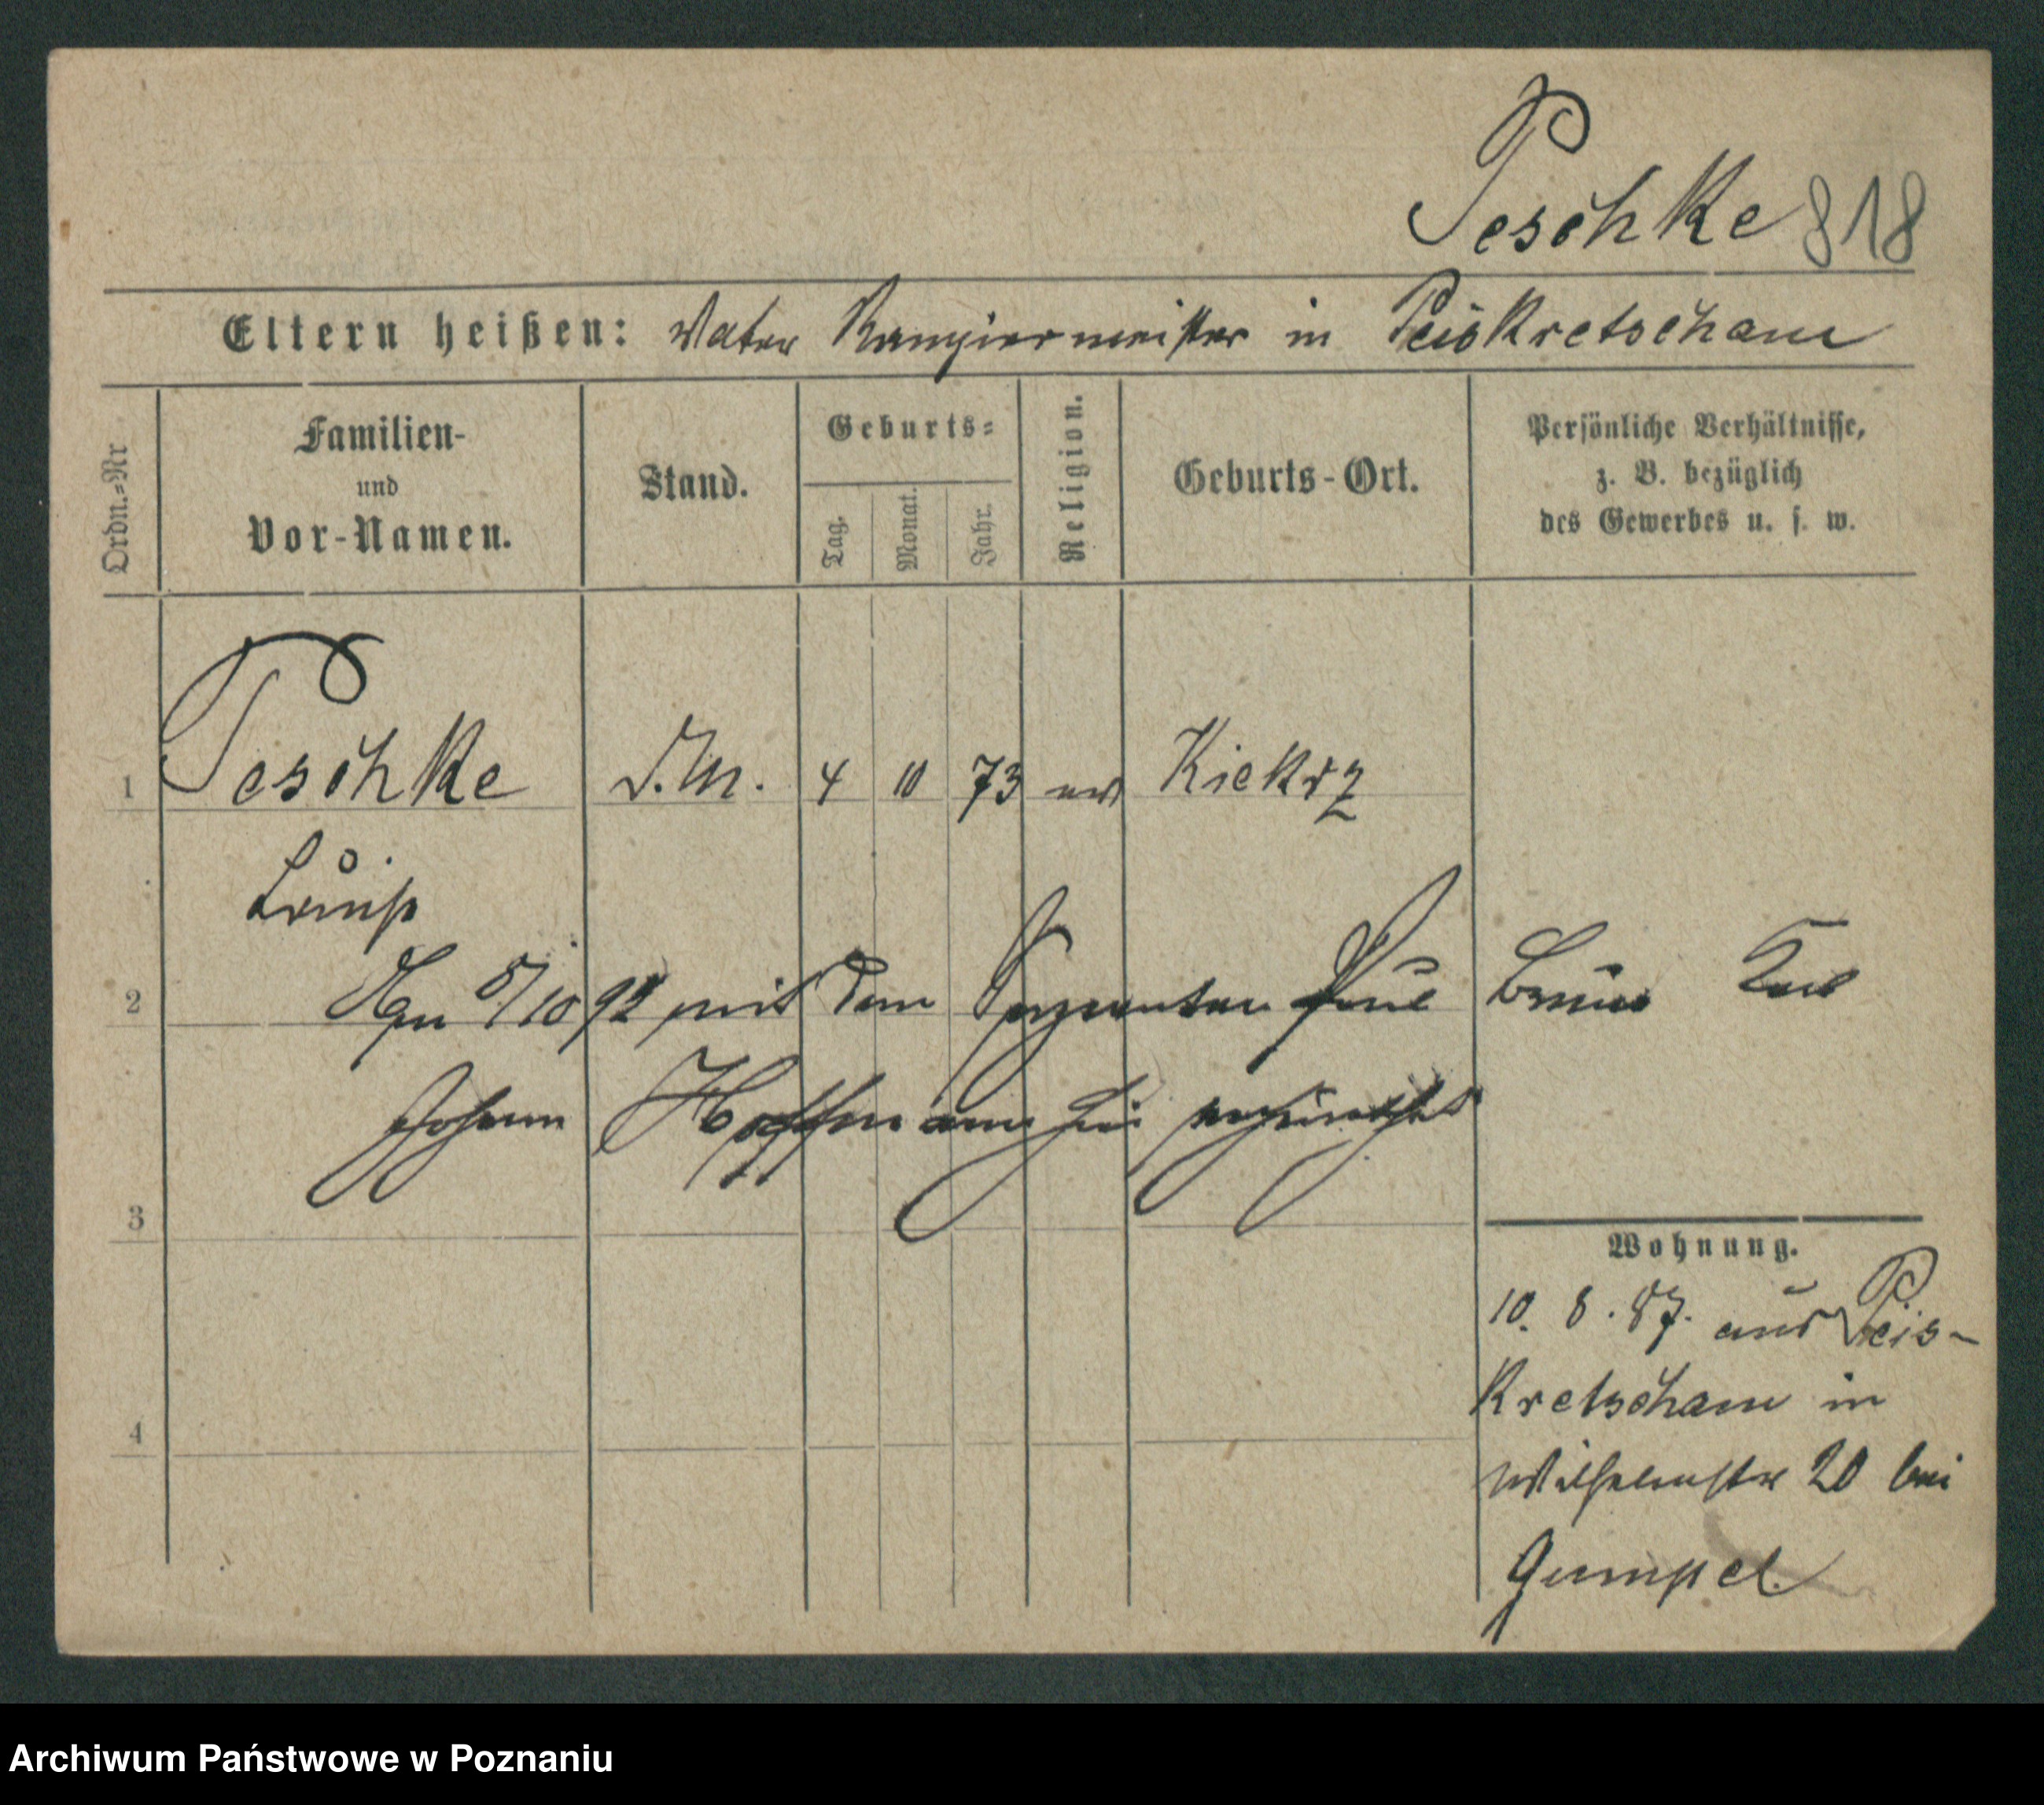 Peschke 818
Eltern heißen: Vater Rangiermeister in Peiskretscham
Ordn.=Nr
Familien-
und
Vor-Namen.
Stand.
Geburts=
Tag.
Monat.
Jahr.
Religion.
Geburts-Ort.
Persönliche Verhältnisse,
z. B. bezüglich
des Gewerbes u. s. w.
1 Peschke D.M. 4 10 73 ev Kiekrz
Louise
2 Am 5/10 92 mit dem Sergeanten Paul Bruno Karl
Johann Hoffmann hier verheirathet
3
4
Wohnung.
10. 8. 87. aus Peis-
kretscham in
Wilhelmstr 20 bei
Gumpel
Archiwum Państwowe w Poznaniu